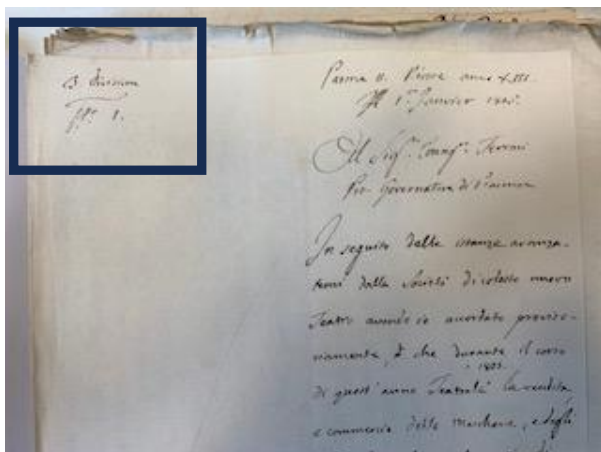 3 Division
N.º 1.
Parma 11. Nivose anno XIII.
1.º Janvier 1805.
Al Sig.r Cons.r Ferrari
Pro-Governatore di Piacenza
In seguito delle istanze avanza-
temi dalla Società di cotesto nuovo
Teatro avendo io accordato provviso-
riamente, che durante il corso
1805.
di quest'anno Teatrale la vendita,
e commercio delle maschere, e degli